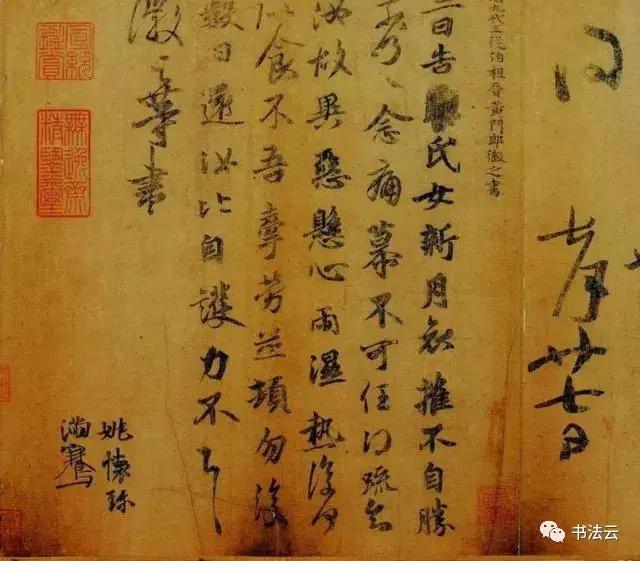 七月廿七日
九代三從伯祖晉黃門郎徽之書
二日告氏女新月哀摧不自勝
奈何〻念痛慕不可任得疏知
汝故異惡懸心雨濕熱復何
似食不吾牽勞並頓勿復
數日還汝比自護力不具
徽之等書
姚懷珍
滿騫
宣統鑒賞
無逸齋精鑒璽
书法云